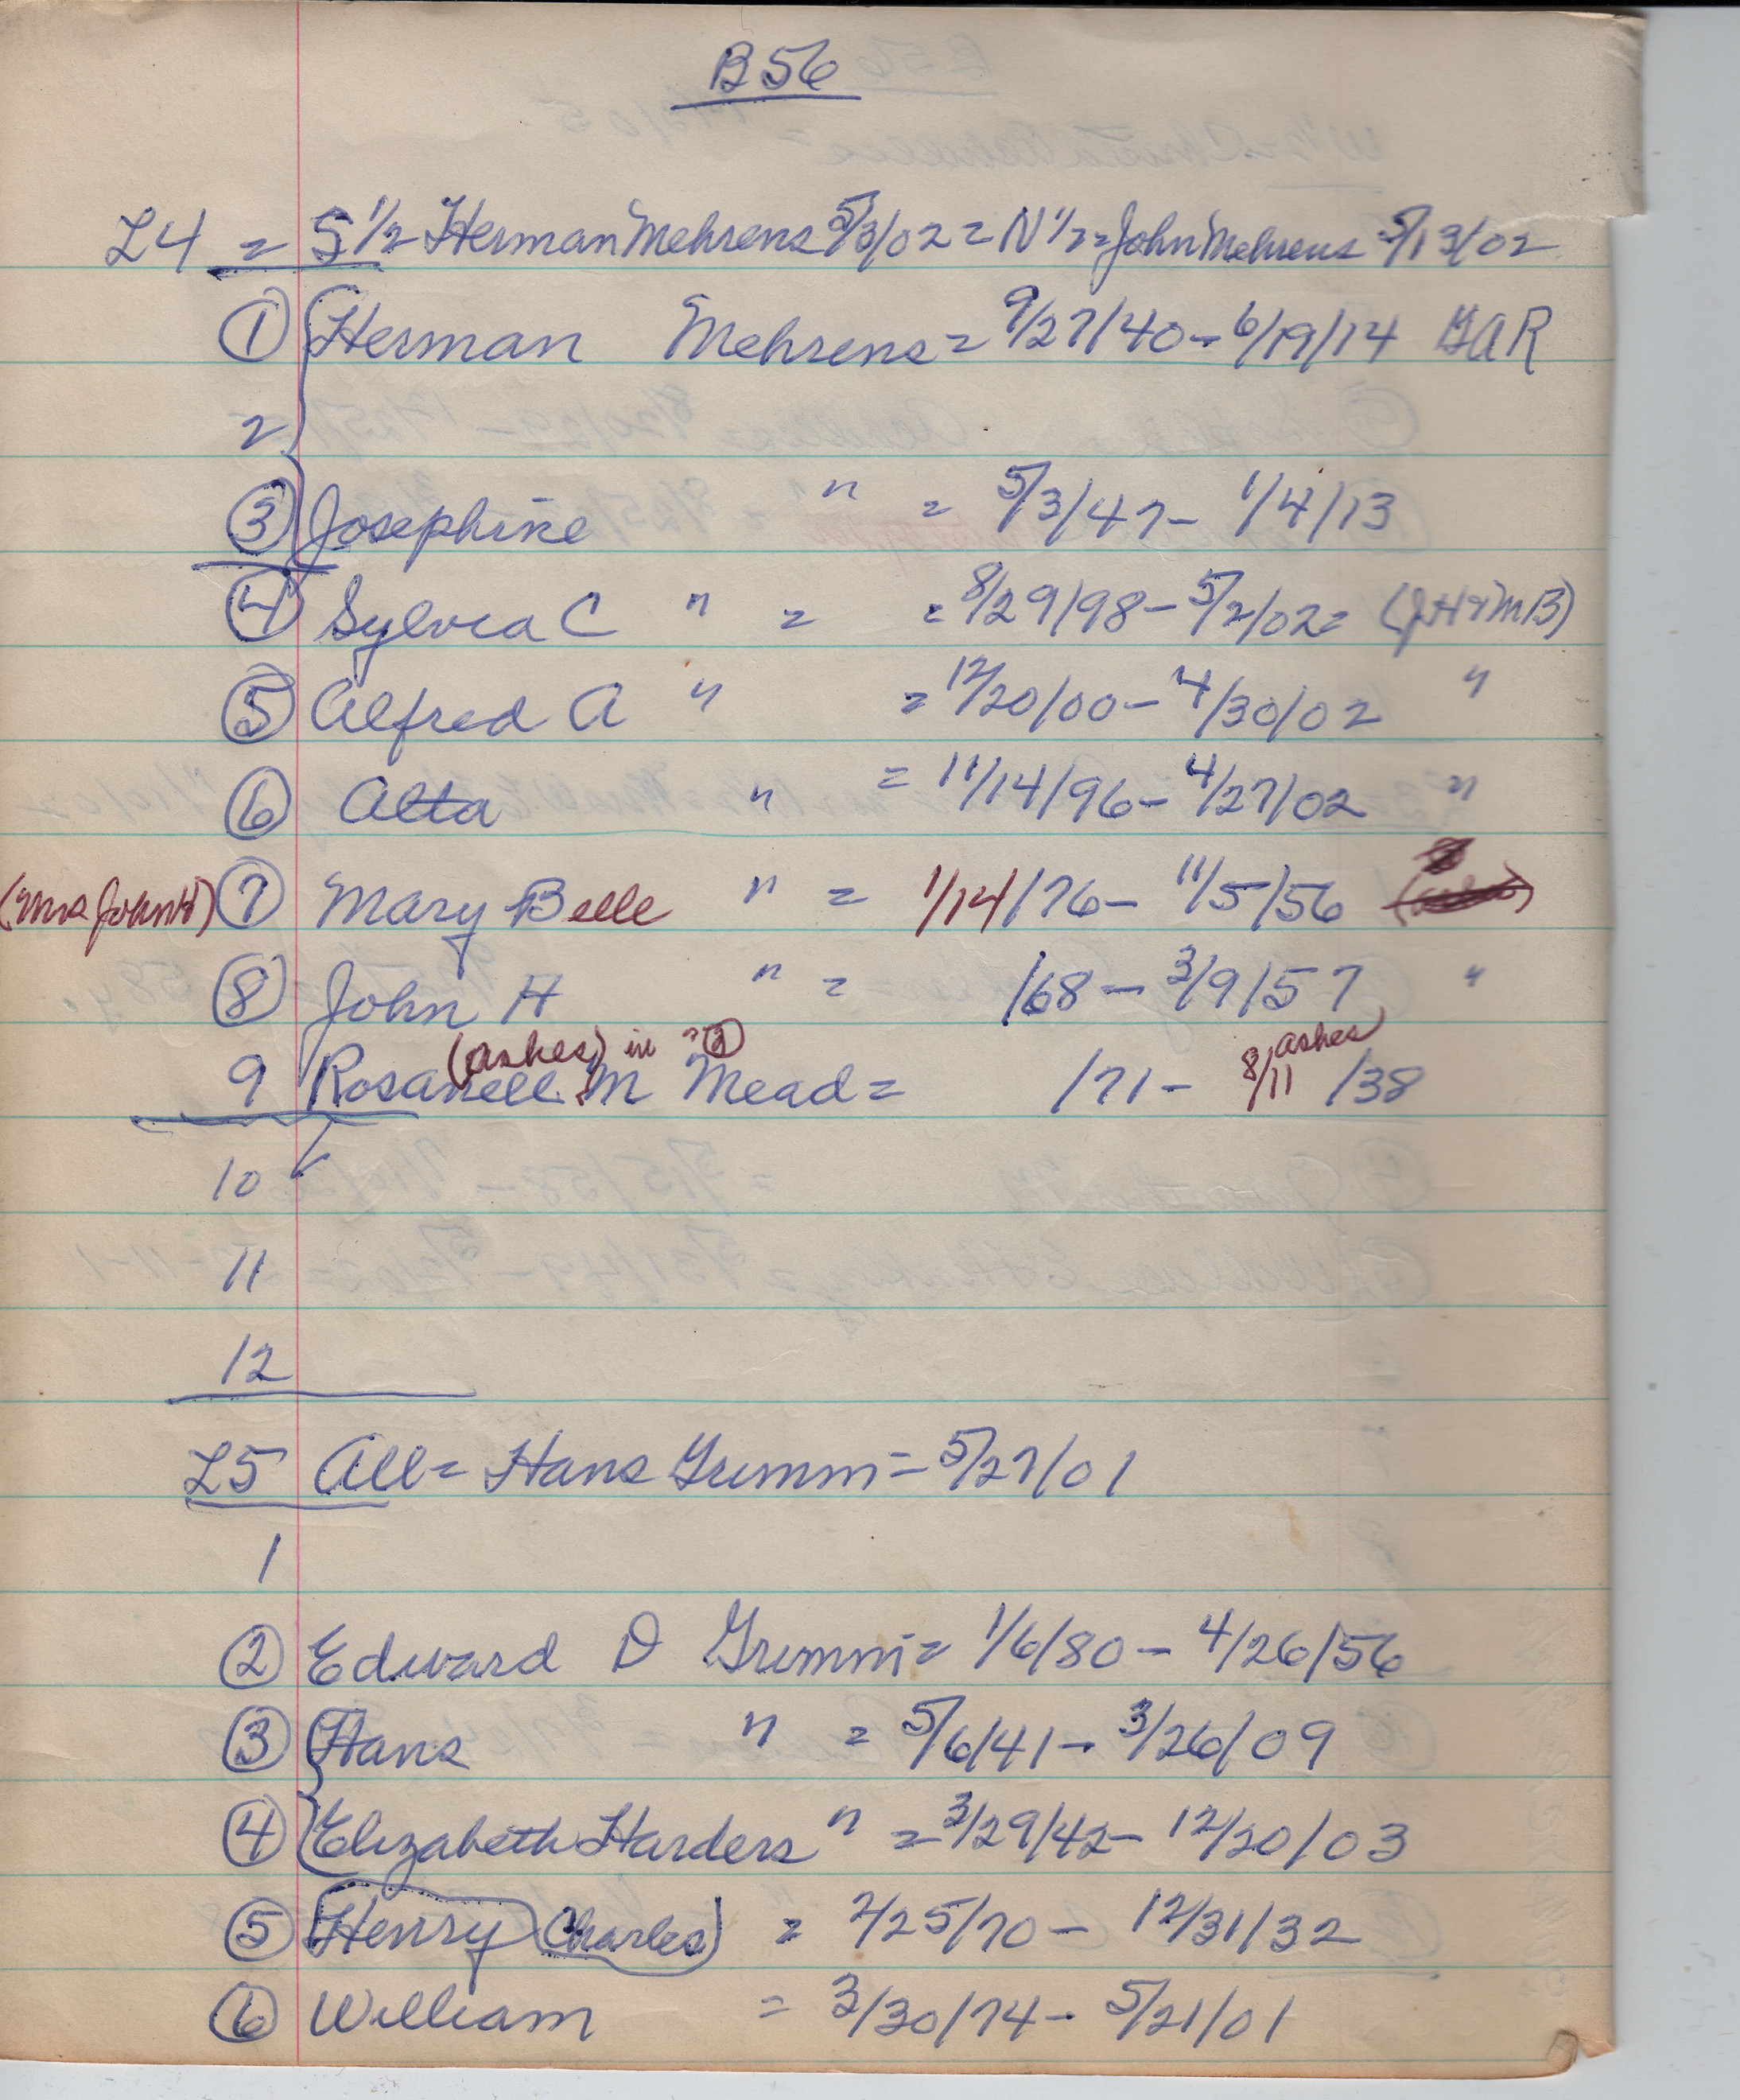 B56
L4 = S 1/2 Herman Mehrens 5/3/02 = N 1/2 = John Mehrens 5/13/02
1 Herman Mehrens = 9/27/40 - 6/19/14 GAR
2
3 Josephine " = 5/3/47 - 1/4/13
4 Sylvia C " = = 8/29/98 - 5/2/02 = (JH & MB)
5 Alfred A " = 12/20/00 - 4/30/02 "
6 Alta " = 11/14/96 - 4/27/02 "
(Mrs John H) 7 Mary Belle " = 1/14/76 - 11/5/56
8 John H " = /68 - 3/9/57 "
(ashes) in ashes)
9 Rosanell M Mead = /71 - 8/11 /38
10
11
12
L5 All = Hans Grimm = 5/27/01
1
2 Edward D Grimm = 1/6/80 - 4/26/56
3 Hans " = 5/6/41 - 3/26/09
4 Elizabeth Harders " = 3/29/42 - 12/20/03
5 Henry (Charles) = 2/25/70 - 12/31/32
6 William = 3/30/74 - 5/21/01